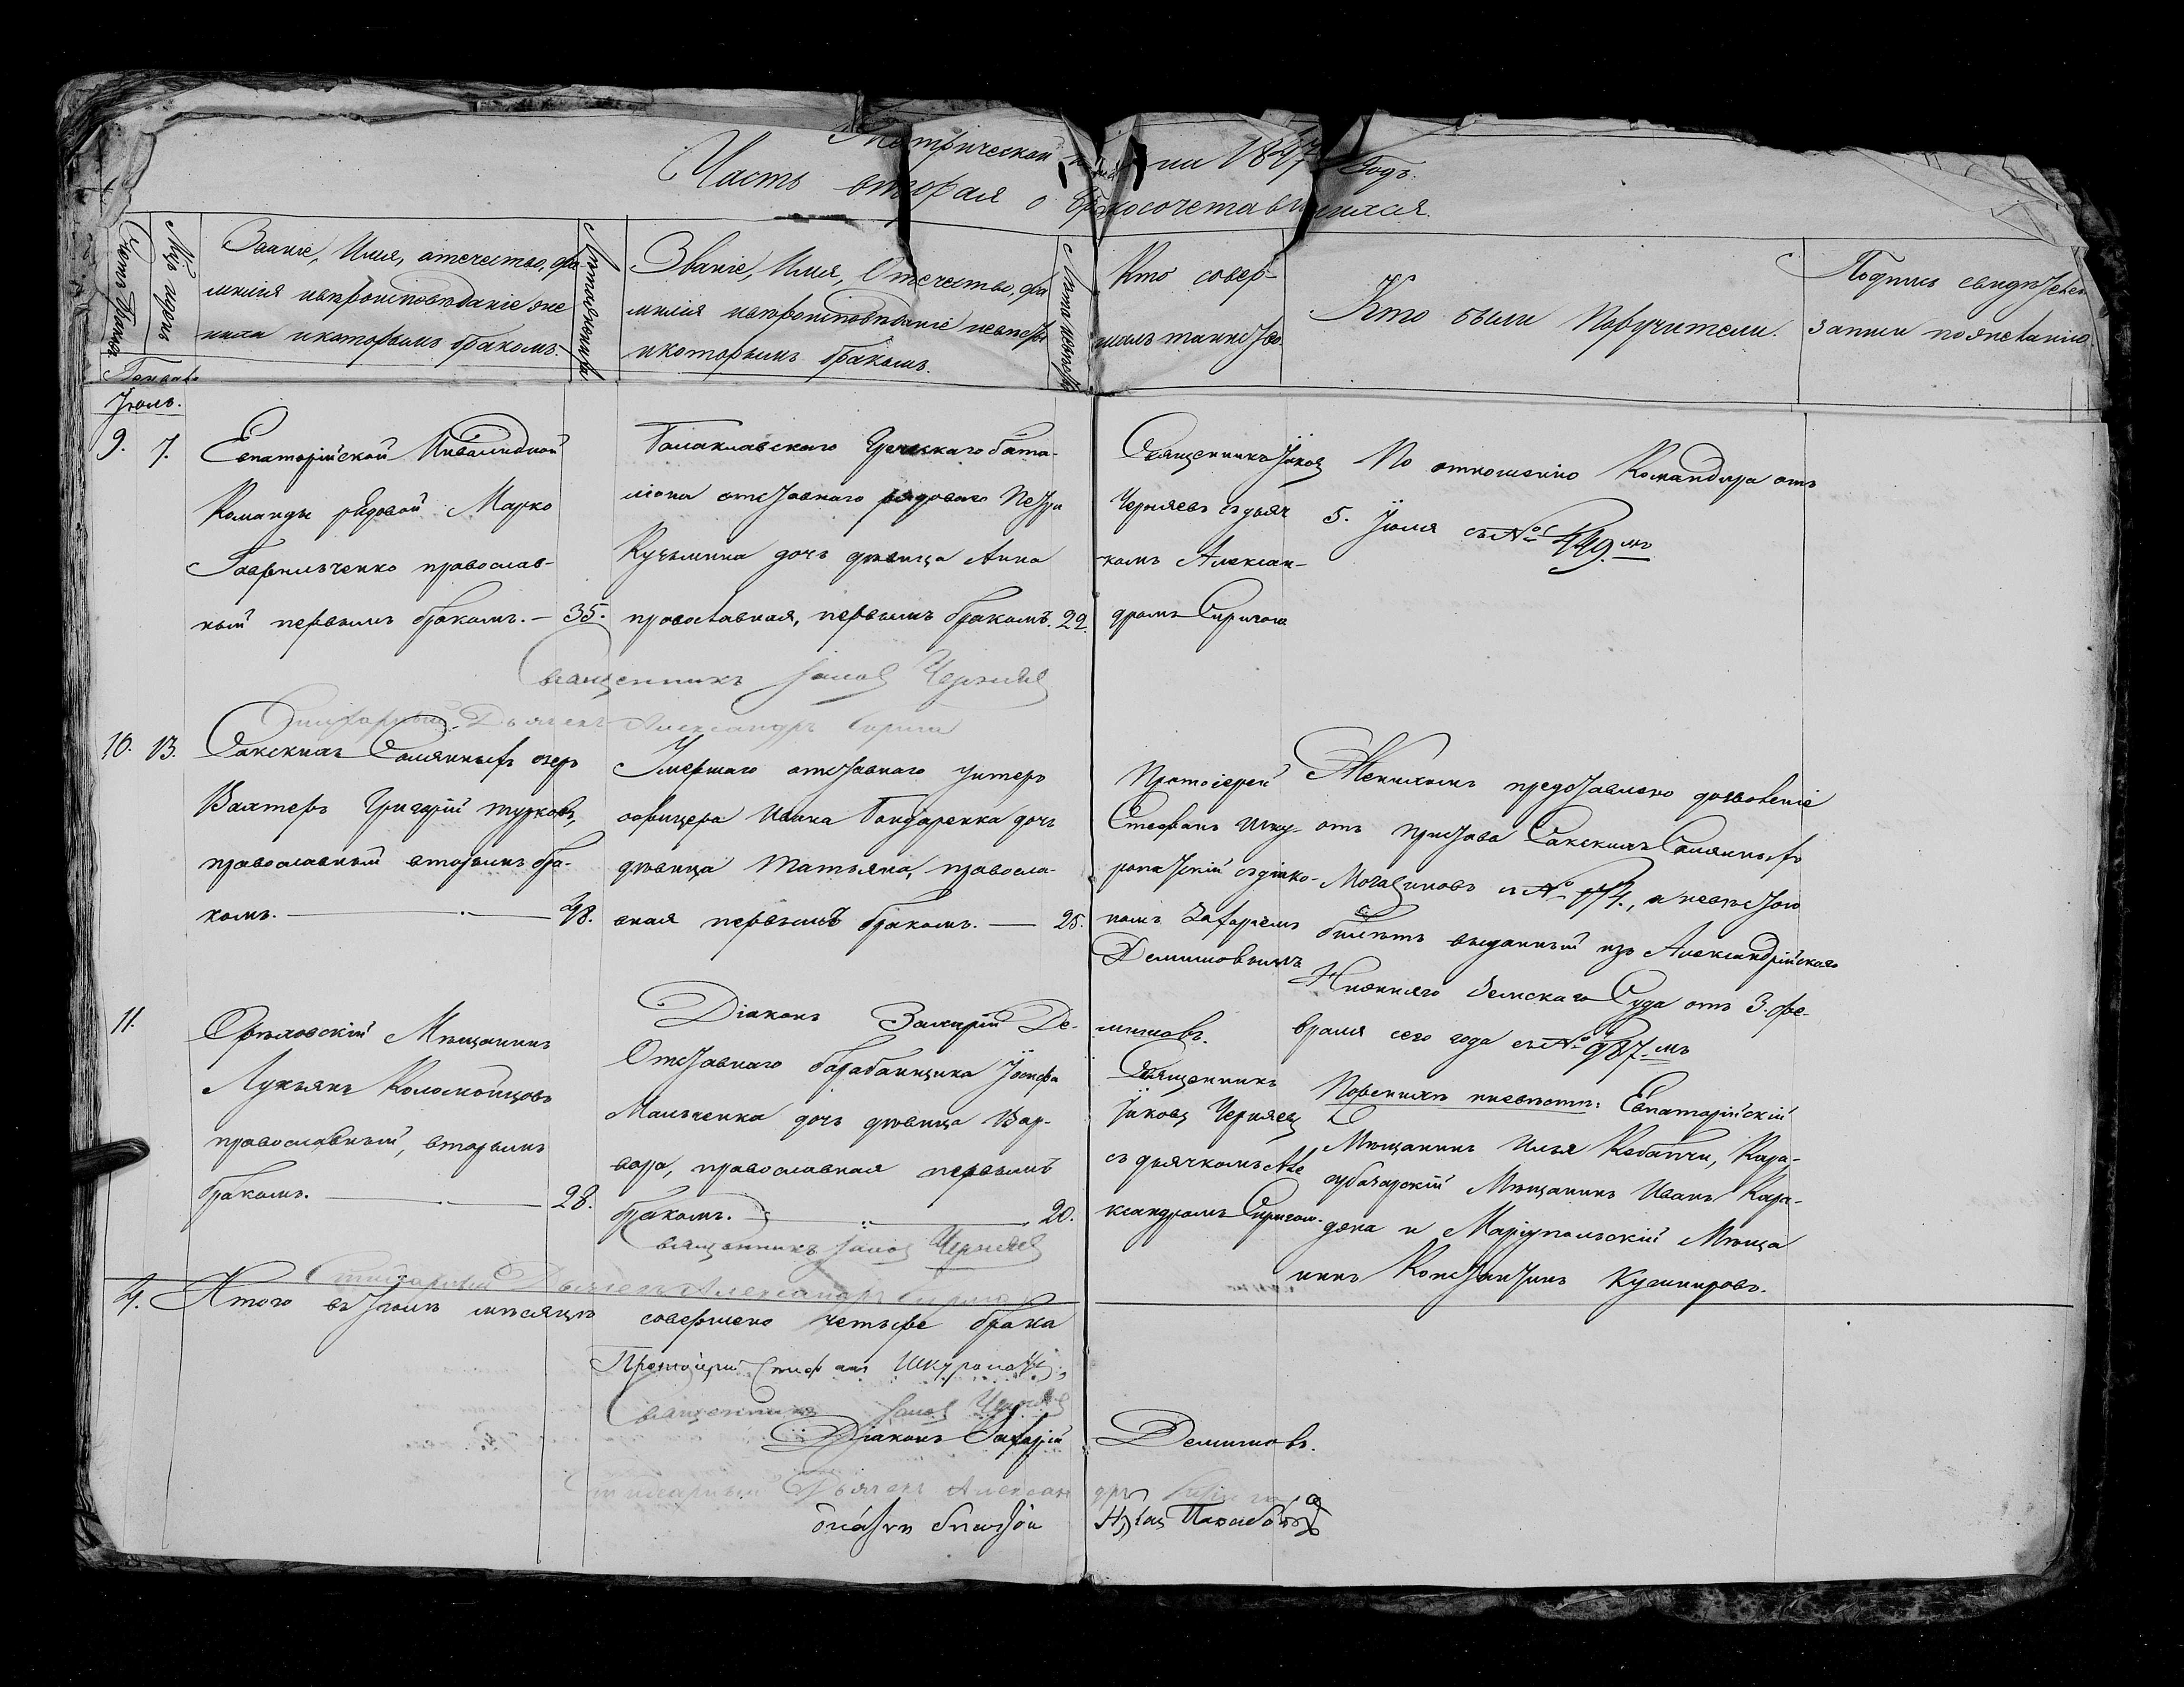 Метрической на 1847 Годъ.
Часть вторая о бракосочетавшихся.
Счетъ браковъ
Мѣсяцъ
Званіе, Имя, отечество, фа-
милія ивѣроисповѣданіе же
ниха икоторымъ бракомъ.
Лѣта жениха
Званіе, Имя, Отечество, фа
милія ивѣроисповѣданіе невѣсты
икоторымъ бракомъ.
Лѣта невѣсты
Кто совер-
шалъ таинство
Кто были Поручители.
Подпись свидѣтелей
записи пожеланію
Іюль.
9. 7. Евпаторійской Инвалидной
Команды рядовой Марко
Гаврильченко православ-
ный первымъ бракомъ. — 35.
Балаклавскаго Греческаго бата-
ліона отставнаго рядоваго Петра
Кузьмина дочь дѣвица Анна
православная, первымъ бракомъ. 22.
Священникъ Іаковъ
Черняевъ сдьяч
комъ Алексан-
дромъ Сиригою
По отношенію Командира отъ
5. Іюля съ № 449.мъ
Священникъ Іаковъ Черняев
Стихарный Дьячекъ Александръ Сирига
10. 13. Сакскихъ Соляныхъ озеръ
Вахтеръ Григорій Турковъ,
православный вторымъ бра-
комъ. — 48.
Умершаго отставнаго унтеръ
офицера Ивана Бондаренка дочь
дѣвица Татьяна, правосла-
вная первымъ бракомъ. — 25.
Протоіерей
Стефанъ Шку-
ропатскій сдіако-
номъ Захаріемъ
Демишовымъ
Женихомъ представлено дозволеніе
отъ пристава Сакскихъ Соляныхъ
билѣтъ выданный изъ Александрійскаго
Нижняго Земскаго Суда отъ 3. фе-
враля сего года съ № 987-мъ
Діаконъ Захарій Де-
мишовъ.
11. Орѣховскій Мѣщанинъ
Лукьянъ
православный, вторымъ
бракомъ. — 28.
Отставнаго барабанщика Іосифа
Мальченка дочь дѣвица Вар-
вара, православная первымъ
бракомъ. — 20.
Священникъ
Іаковъ Черняевъ
съ дьячкомъ Але
ксандромъ Сиригою.
Поженихѣ иневѣстѣ: Евпаторійскій
Мѣщанинъ Илья Кобапчи, Кара-
субазарскій Мѣщанинъ Иванъ Кара-
дяна и Маріупольскій Мѣща
нинъ Константинъ Кушнировъ.
Священникъ Іаковъ Черняев
Стихарный Дьячекъ Александръ Сирига
4. Итого въ Іюлѣ мѣсяцѣ совершено четыре брака
Протоіерей Стефанъ Шкуропатскій
Священникъ Іаковъ Черняев
Діаконъ Захарій Демишовъ.
Стихарный Дьячекъ Александръ Сирига